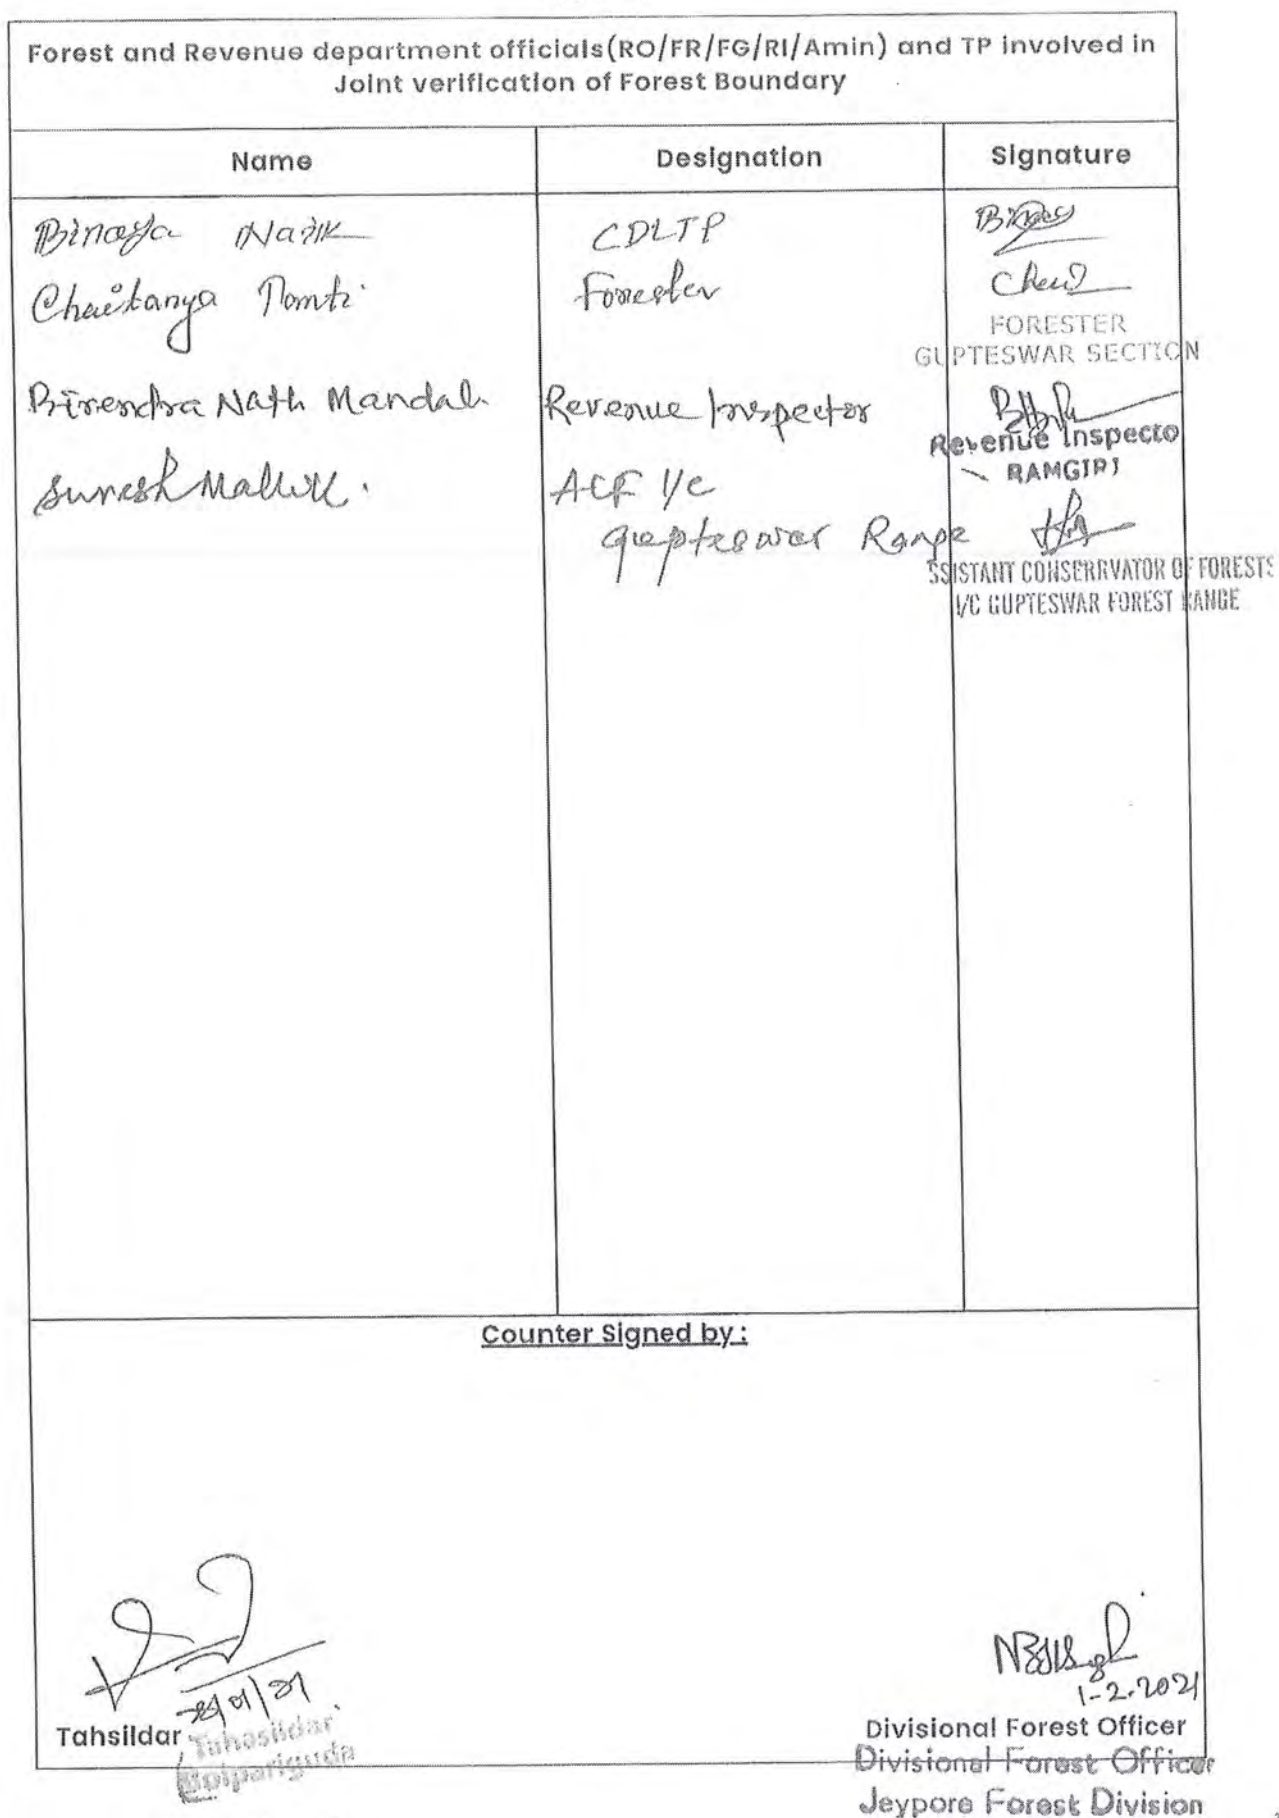 Forest and Revenue department officials(RO/FR/FG/RI/Amin) and TP involved in
Joint verification of Forest Boundary
Name Designation Signature
Binaya Naik CDLTP Binay
Chaitanya Forester
FORESTER
GUPTESWAR SECTION
Birendra Nath Mandal. Revenue Inspector
Revenue Inspecto
RAMGIRI
Suresh Mallik. ACF I/C
Gupteswar Range
SSISTANT CONSERRVATOR OF FORESTS
I/C GUPTESWAR FOREST RANGE
Counter Signed by :
1-2-2021
Tahsildar Divisional Forest Officer
Tahasildar Divisional Forest Officer
Boipariguda Jeypore Forest Division